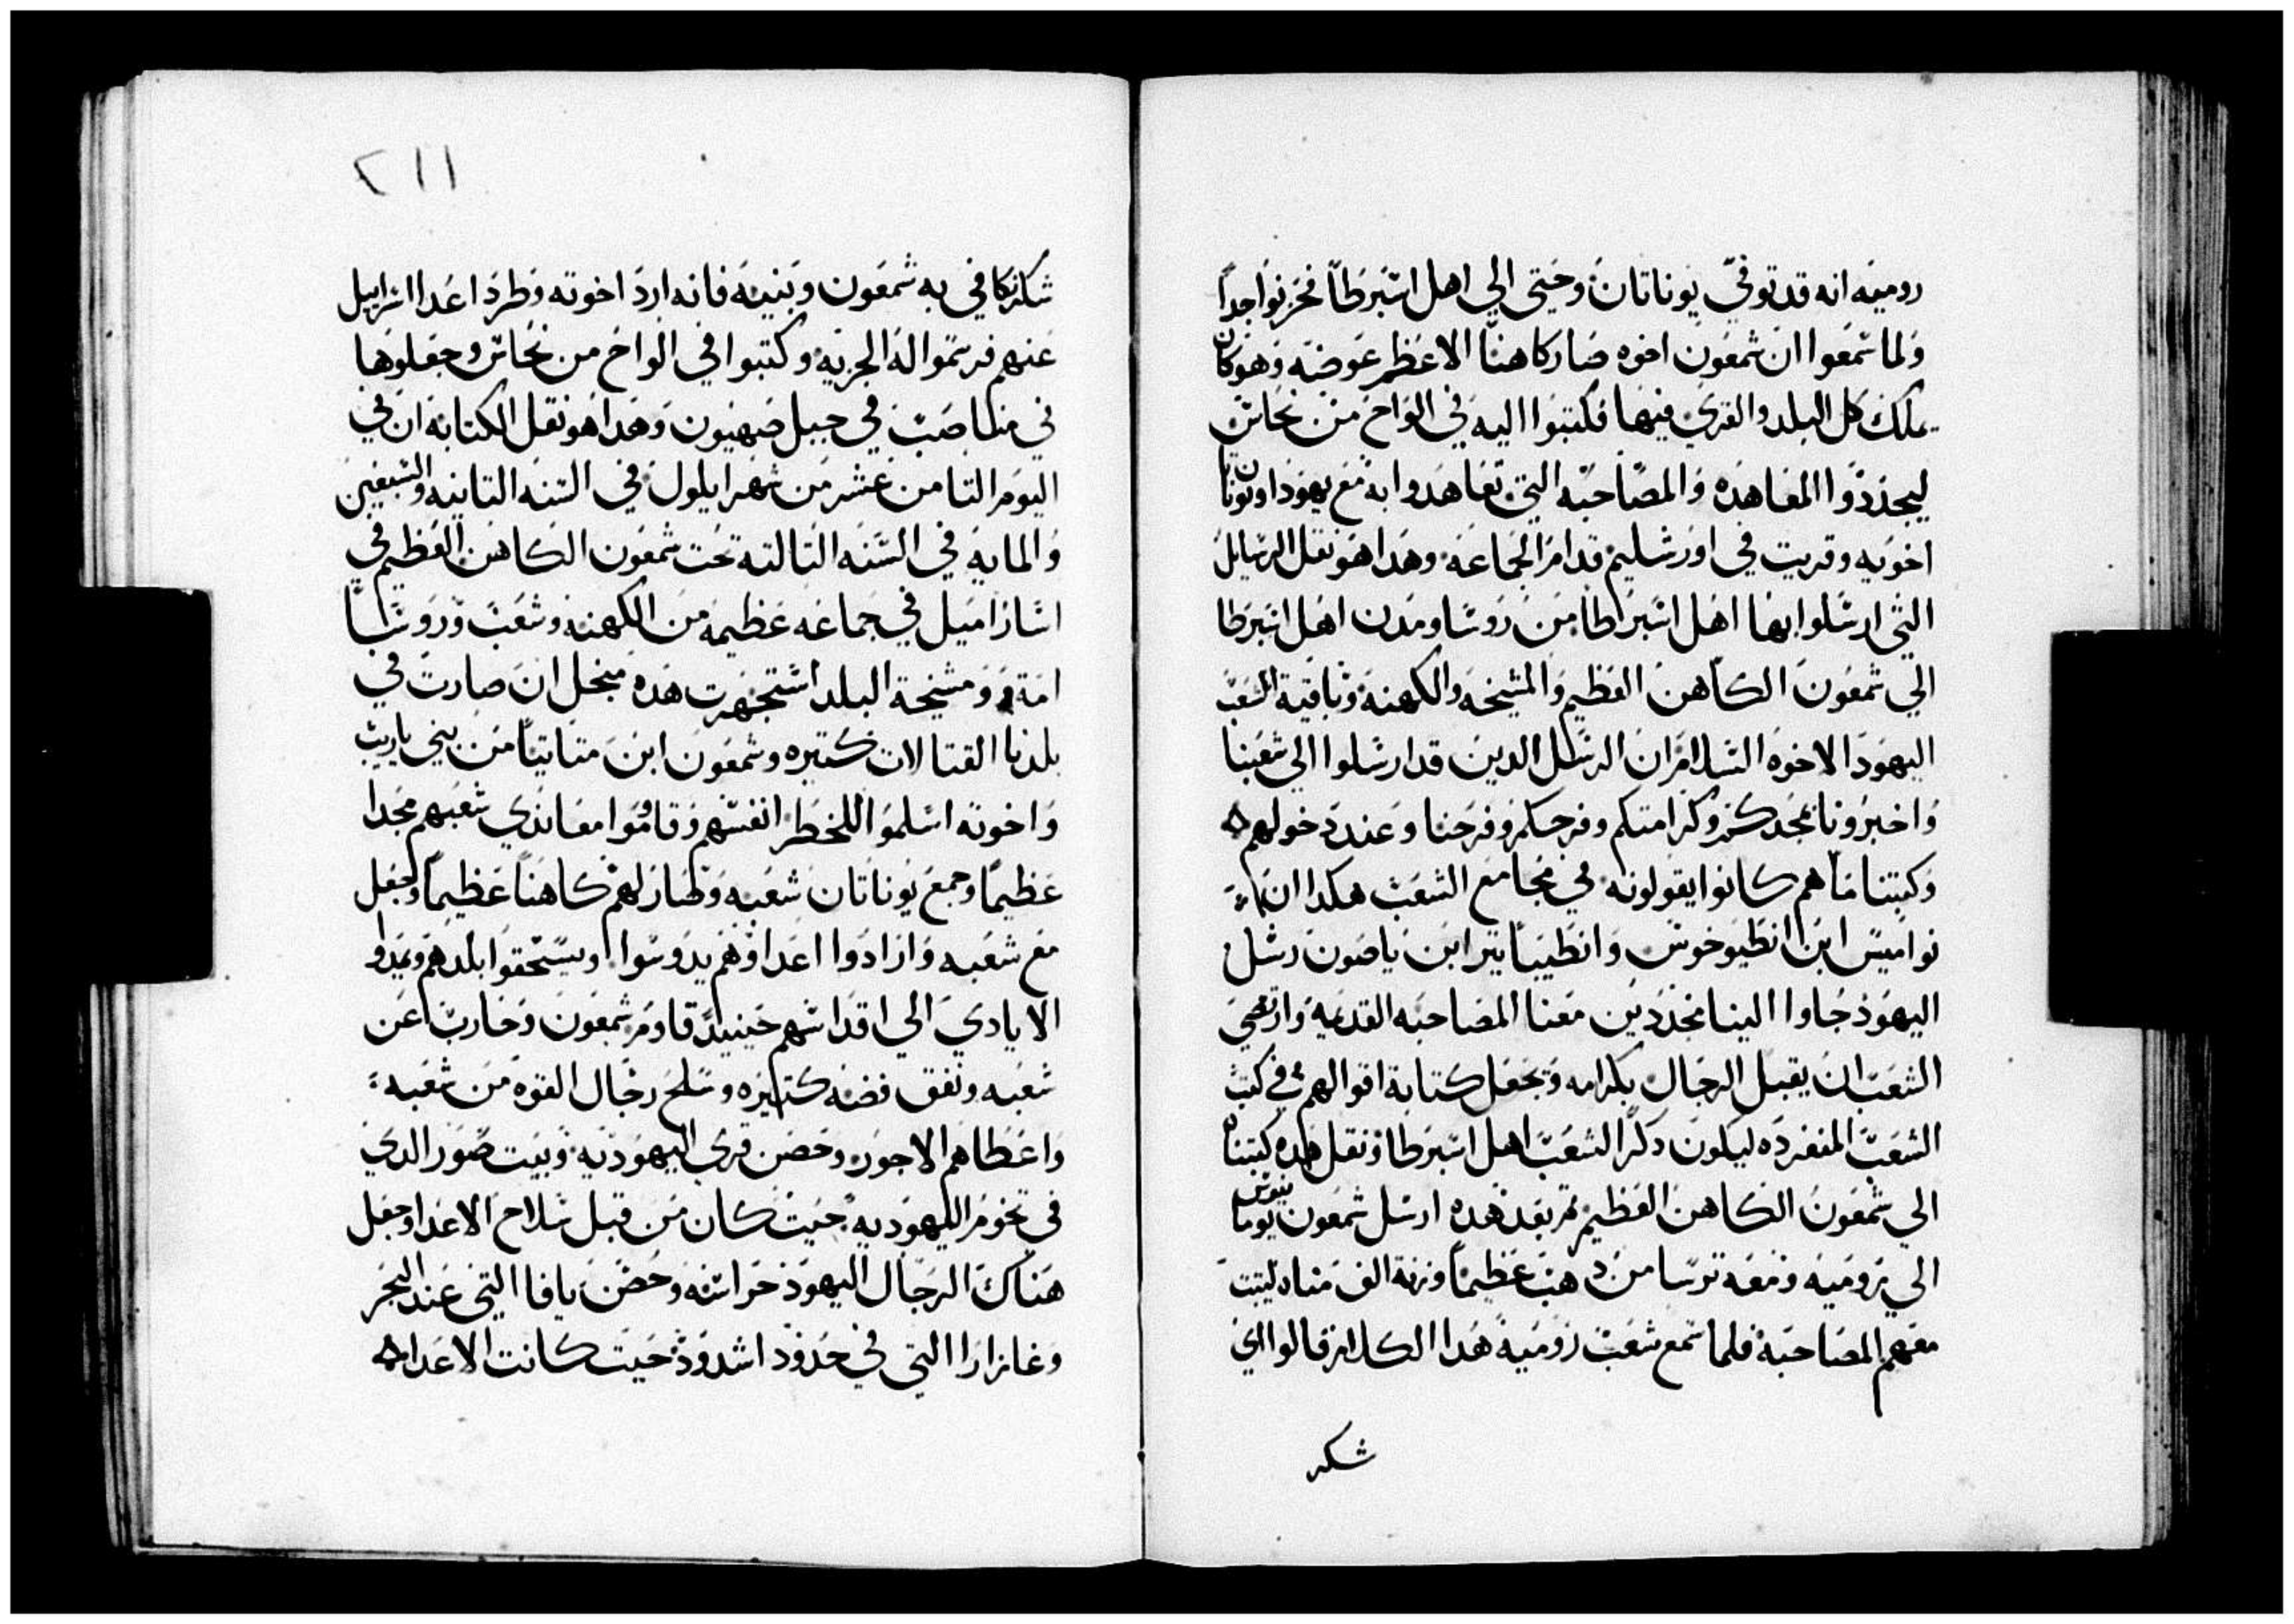 روميه انه قد توفي يوناتان وحتي الي اهل اسبرطا فحزنوا جداً
ولما سمعوا ان شمعون اخوه صار كاهنا الاعظم عوضه وهو كان
يملك كل البلد والقري فيها فكتبوا اليه في الواح من نحاس
ليجددوا المعاهده والمصاحبه التي تعاهدوا به مع يهودا ويوناتان
اخوته وقريت في اورشليم قدام الجماعه وهدا هو نقل الرسايل
التي ارسلوا بها اهل اسبراطا من روسا ومدن اهل اسبرطا
الي شمعون الكاهن العظيم والمشيخه والكهنه وباقية الشعب
اليهود الاخوه السلام ان الرسل الدين قد ارسلوا الي شعبنا
واخبرونا بمجدكم وكرامتكم وفرحكم وفرحنا وعند دخولهم
وكتبنا ما هم كانوا يقولونه في مجامع الشعب هكدا ان
نواميس ابن انطيوخوس وانطيباتير ابن ياصون رسل
اليهود جاوا الينا مجددين معنا المصاحبه القديمه وارتضي
الشعب ان يقبل الرجال بكرامه وتجعل كتابة اقوالهم في كتب
الشعب المنفرده ليكون دكراً لشعب اهل اسبرطا ونقل هده كتبناه
الي شمعون الكاهن العظيم ثم بعد هده ارسل شمعون نيومانيوس
الي روميه ومعه ترسا من دهب عظيماً وزنة الف مناه ليتبت
معهم المصاحبه فلما سمع شعب روميه هدا الكلام قالوا اي
شكر
٢١١
شكر نكافي به شمعون وبنيه فانه ارد اخوته وطرد اعدا اسراييل
عنهم فرسموا له الحريه وكتبوا في الواح من نحاس وجعلوها
في مناصب في جبل صهيون وهدا هو نقل الكتابة ان في
اليوم التامن عشر من شهر ايلول في السنه التانيه والسبعين
والمايه في السنه التالته تحت شمعون الكاهن العظيم في
اسارامبل في جماعه عظيمه من الكهنه وشعب وروسا
امة ومشيخة البلد استجهرت هده منجل ان صارت في
بلدنا القتالات كتيره وشمعون ابن متاتيا من بني ياريب
واخوته اسلموا للخطر انفسهم وقاموا معاندي شعبهم مجدا
عظيما وجمع يوناتان شعبه وصار لهم كاهناً عظيماً وجعل
مع شعبه وارادوا اعداوهم يدوسوا ويسحقوا بلدهم ويمدوا
الايادي الي اقداسهم حينيدً قاوم شمعون وحارب عن
شعبه ونفق فضه كتيره وسلح رجال القوه من شعبه
واعطاهم الاجور وحصن قري اليهوديه وبيت صور الدي
في تخوم اليهوديه حيت كان من قبل سلاح الاعدا وجعل
هناك الرجال اليهود حراسه وحصن يافا التي عند البحر
وغازارا التي في حدود اشدود حيت كانت الاعدا